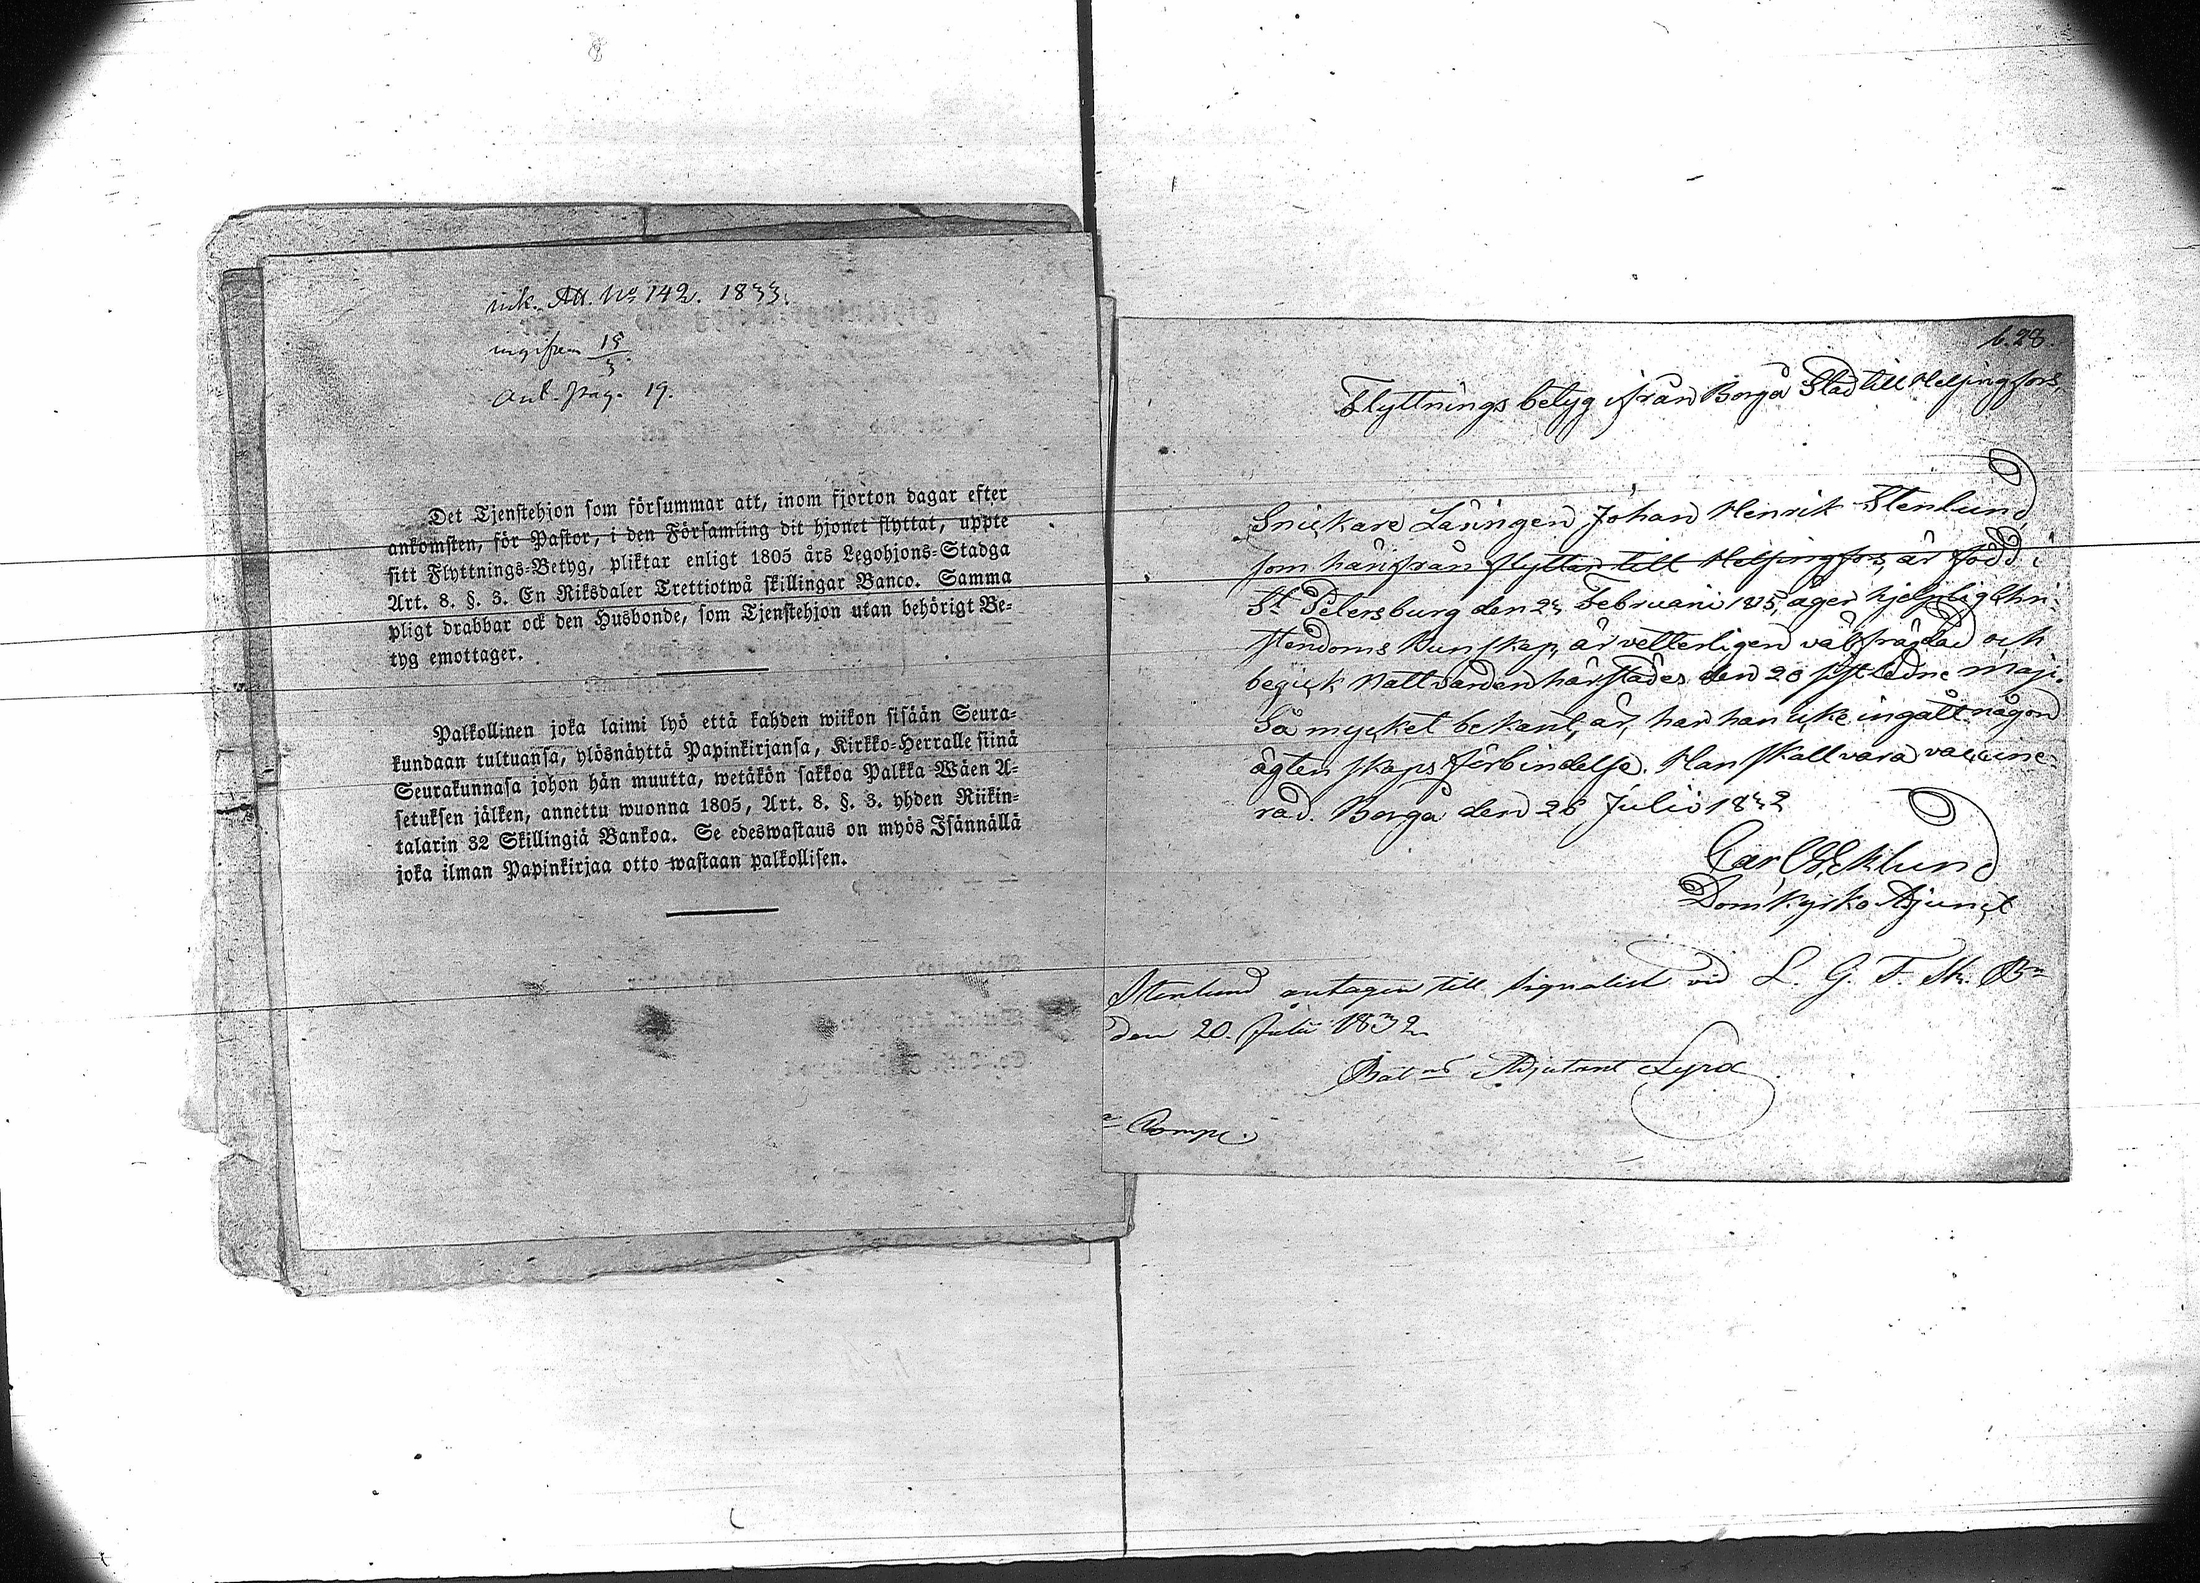 ink. Att. No 142. 1833.
ingifven 15/3.
Ant. pag. 19.
Det Tjenstehjon som försummar att, inom fjorton dagar efter
ankomsten, för Pastor, i den Församling dit hjonet flyttat, uppte
sitt Flyttnings-Betyg, pliktar enligt 1805 års Legohjons-Stadga
Art. 8. §. 3. En Riksdaler Trettiotwå skillingar Banco. Samma
pligt drabbar ock den Husbonde, som Tjenstehjon utan behörigt Be-
tyg emottager.
Palkollinen joka laimi lyö että kahden wiikon sisään Seura-
kundaan tultuansa, ylösnäyttä Papinkirjansa, Kirkko-Herralle siinä
Seurakunnasa johon hän muutta, wetäkön sakkoa Palkka-Wäen A-
setuksen jälken, annettu wuonna 1805, Art. 8. §. 3. yhden Riikin-
talarin 32 Skillingiä Bankoa. Se edeswastaus on myös Isännällä
joka ilman Papinkirjaa otto wastaan palkollisen.
b.28.
Flyttnings betyg ifrån Borgå Stad till Helsingfors
Snickare Läringen Johan Henrik Stenlund
som härifrån flyttar till Helsingfors, är född i
St Petersburg den Februarii 1815, äger hjelplig Chri-
stendoms Kunskap, är vetterligen välfrägdad och
begick Nattvarden härstädes den 20 sistledne Maji.
Så mycket bekant är, har han icke ingått någon
ägtenskaps förbindelse. Han skall vara vaccine-
rad. Borgå den 26 Julii 1832
Carl Eklund
Domkyrko Adjunct
Stenlund antagen till Signalist vid L. G. F. Sk. Bn
den 20. Julii 1832
Batns Adjutant Lyra
Compe.